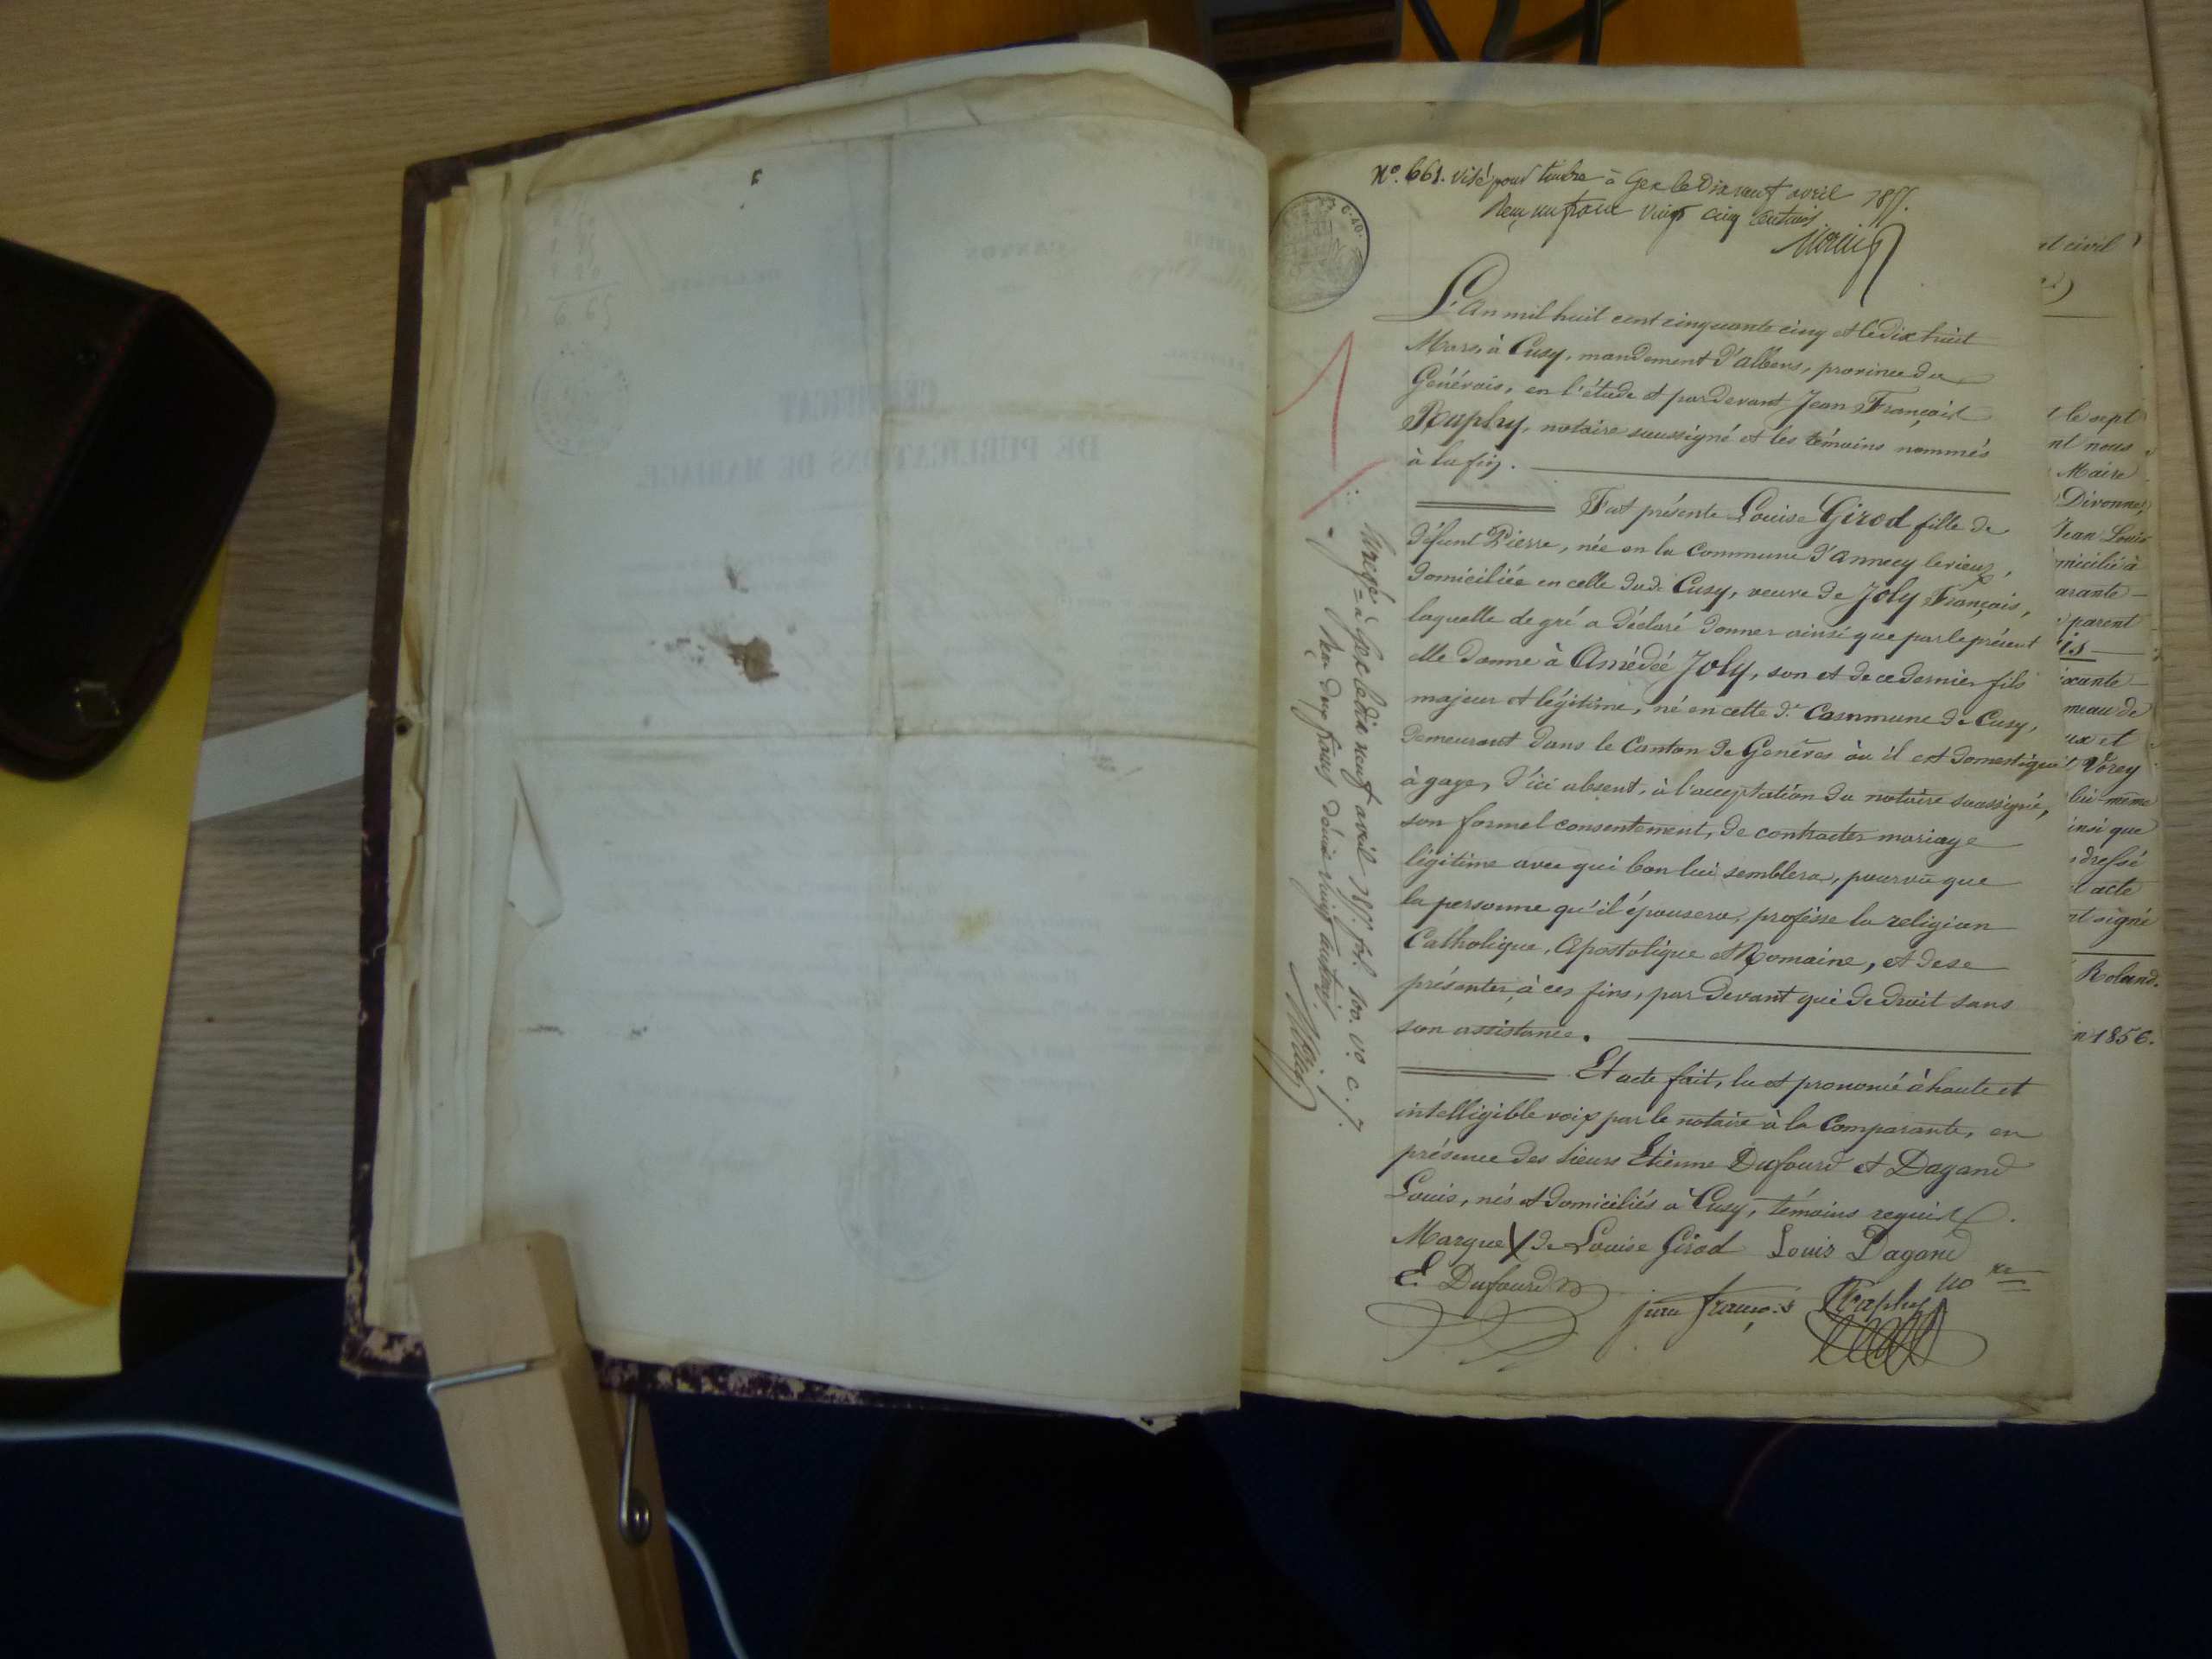 CERTIFICAT
DE PUBLICATIONS DE MARIAGE
No. 661. visé pour timbre à Gex le Dix neuf avril 1855.
Reçu un franc vingt cinq centimes
L'An mil huit cent cinquante cinq et le dix huit
Mars, à Cusy, mandement d'albens, province du
Genévois, en l'étude et pardevant Jean François
Raphy, notaire soussigné et les témoins nommés
à la fin.
Fut présente Louise Girod fille de
défunt Pierre, née en la Commune d'annecy le vieux,
domiciliée en celle du de Cusy, veuve de Joly François,
laquelle de gré a déclaré donner ainsi que par le présent
elle donne à Amédée Joly, son et de ce dernier fils
majeur et légitime, né en cette de Commune de Cusy,
demeurant dans le Canton de Genêves où il est domestique
à gage, d'ici absent, à l'acceptation du notaire soussigné,
son formel consentement, de contracter mariage
légitime avec qui bon lui semblera, pourvu que
la personne qu'il épousera, professe la religion
Catholique, Apostolique et Romaine, et de se
présenter à ces fins, par devant qui de droit sans
son assistance.
Et acte fait, lu et prononcé à haute et
intelligible voix par le notaire à la Comparante, en
présence des Sieurs Etienne Dufourd et Dagand
Louis, nés et domiciliés à Cusy, témoins requis.
Marque X de Louise Girod Louis Dagand
E Dufourd
jean françois Raphy no re
Enregé à Gex le dix neuf avril 1855. fol. 100. vo. c. 7.
Reçu deux francs décime vingt centimes
at civil
t le sept
nt nous
Maire
Divonne,
Jean Louis
micilié à
arante
parent
is
ixante
meau de
ux et
Vorey
lui-même
insi que
dressé
t acte
nt signé
Roland.
n 1856.